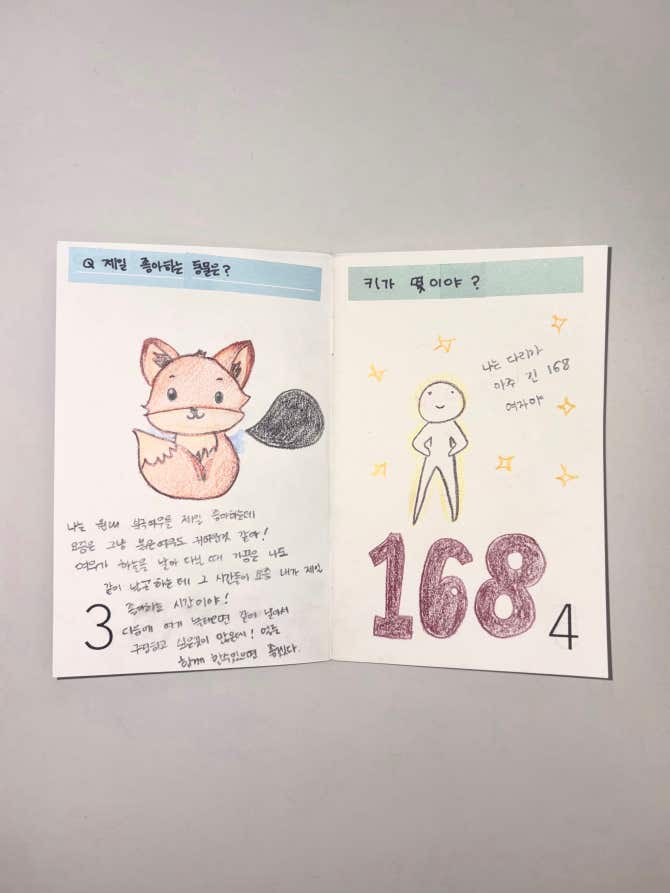 Q 제일 좋아하는 동물은?
나는 원래 북극여우를 제일 좋아하는데
요즘은 그냥 붉은여우도 귀여운것 같아!
여우가 하늘을 날아 다닐 때 가끔은 나도
같이 날곤 하는데 그 시간들이 요즘 내가 제일
좋아하는 시간이야!
다음에 아기 낙타랑 같이 날아서
구경하고 싶은곳이 많은데!
함께 할수있으면 좋겠다.
3
키가 몇이야?
나는 다리가
아주 긴 168
여자야
168
4